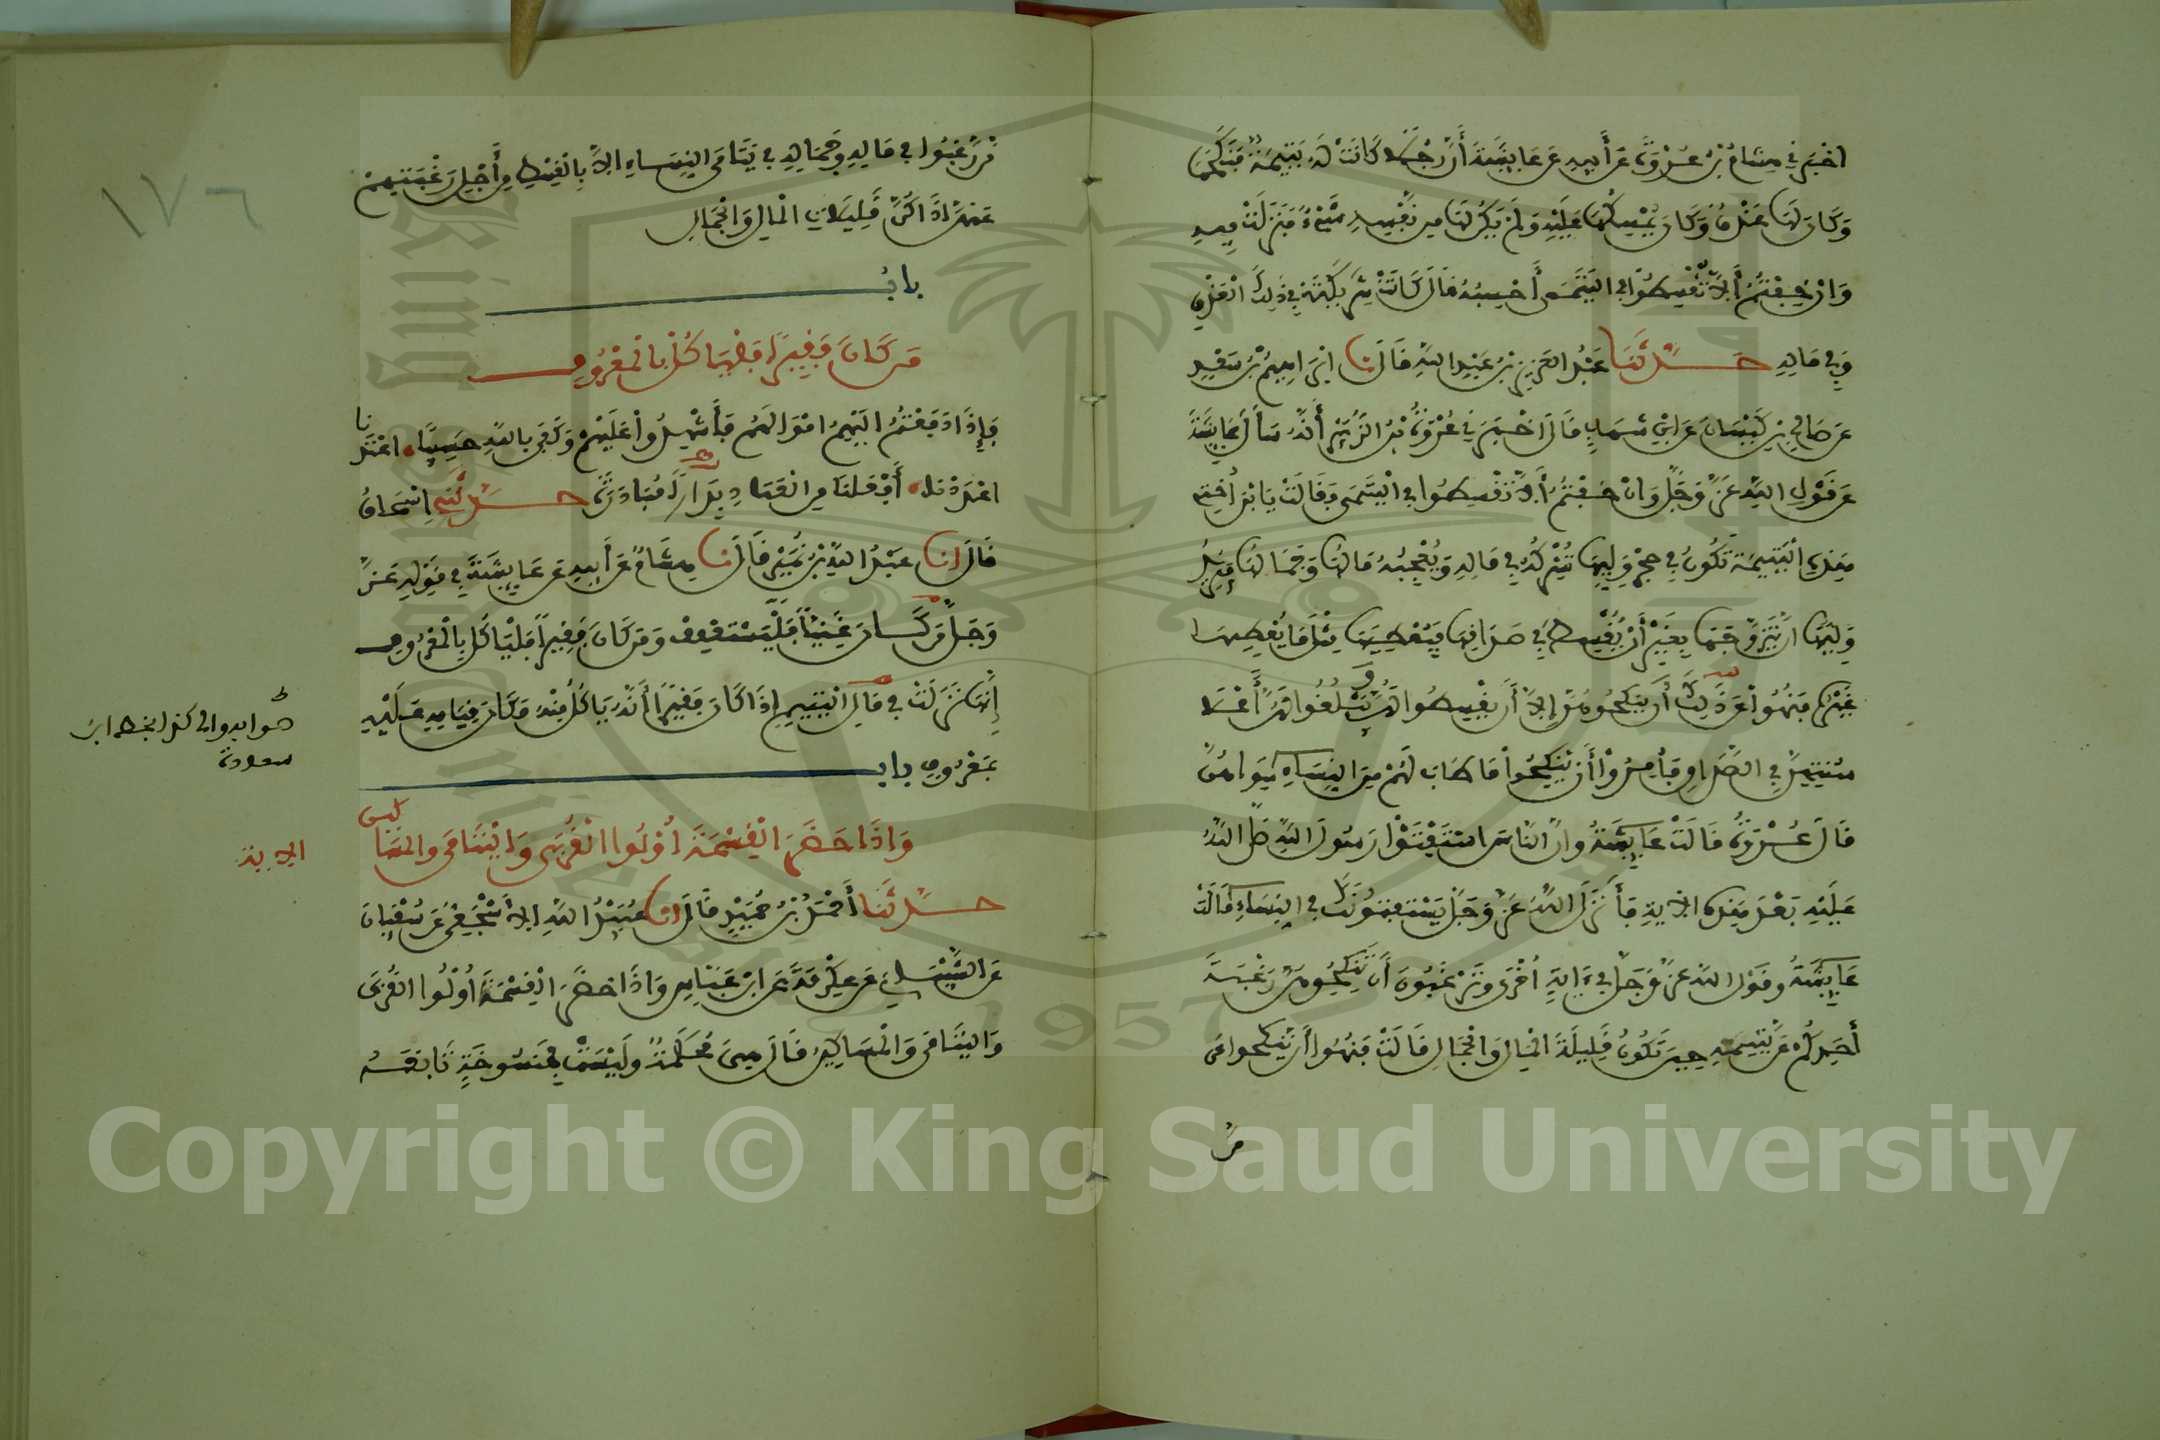 اخْبَرَنِي هِشَامُ بْنُ عُرْوَةَ عَنْ أَبِيهِ عَنْ عَايِشَةَ أَنَّ رَجُلًا كَانَتْ لَهُ يَتِيمَةٌ فَنَكَحَهَا
وَكَانَ لَهَا عَذْقٌ وَكَانَ يُمْسِكُهَا عَلَيْهِ وَلَمْ يَكُنْ لَهَا مِنْ نَفْسِهِ شَيْءٌ فَنَزَلَتْ فِيهِ
وَانْ خِفْتُمُ أَلَّا تُقْسِطُوا فِي الْيَتَمَى أَحْسِبُهُ قَالَ كَانَتْ شَرِيكَتَهُ فِي ذَلِكَ الْعَذْقِ
وَفِي مَالِهِ حَدَّثَنَا عَبْدُ الْعَزِيزِ بْنُ عَبْدِ اللهِ قَالَ نا ابْرَاهِيمُ بْنُ سَعْدٍ
عَنْ صَالِحِ بْنِ كَيْسَانَ عَنِ ابْنِ شِهَابٍ قَالَ اخْبَرَنِي عُرْوَةُ بْنُ الزُّبَيْرِ أَنَّهُ سَأَلَ عَايِشَةَ
عَنْ قَوْلِ اللهِ عَزَّ وَجَلَّ وَانْ خِفْتُمُ أَلَّا تُقْسِطُوا فِي الْيَتَمَى فَقَالَتْ يَابْنَ أُخْتِي
هَذِهِ الْيَتِيمَةُ تَكُونُ فِي حِجْرِ وَلِيِّهَا تُشْرِكُهُ فِي مَالِهِ وَيُعْجِبُهُ مَالُهَا وَجَمَالُهَا فَيُرِيدُ
وَلِيُّهَا انْ يَتَزَوَّجَهَا بِغَيْرِ أَنْ يُقْسِطَ فِي صَدَاقِهَا فَيُعْطِيَهَا مِثْلَ مَا يُعْطِيهَا
غَيْرُهُ فَنُهُوا عَنْ ذَلِكَ أَنْ يَنْكِحُوهُنَّ إِلَّا أَنْ يُقْسِطُوا لَهُنَّ وَيَبْلُغُوا لَهُنَّ أَعْلَا
سُنَّتِهِنَّ فِي الصَّدَاقِ فَأُمِرُوا أَنْ يَنْكِحُوا مَا طَابَ لَهُمْ مِنَ النِّسَاءِ سِوَاهُنَّ
قَالَ عُرْوَةُ قَالَتْ عَايِشَةُ وانَّ النَّاسَ اسْتَفْتَوْا رَسُولَ اللهِ صَلَّى اللهُ
عَلَيْهِ بَعْدَ هَذِهِ الْآيَةِ فَأَنْزَلَ اللهُ عَزَّ وَجَلَّ يَسْتَفْتُونَكَ فِي النِّسَاءِ قَالَتْ
عَايِشَةُ وقَوْلُ اللهِ عَزَّ وَجَلَّ فِي ءَايَةٍ أُخْرَى وتَرْغَبُونَ أَنْ تَنْكِحُوهُنَّ رَغْبَةَ
أَحَدِكُمْ عَنْ يَتِيمَتِهِ حِينَ تَكُونُ قَلِيلَةَ الْمَالِ وَالْجَمَالِ قَالَتْ فَنُهُوا أَنْ يَنْكِحُوا مَنْ
١٧٦
رَغِبُوا فِي مَالِهِ وَجَمَالِهِ فِي يَتَامَى النِّسَاءِ الَّا بِالْقِسْطِ مِنْ أَجْلِ رَغْبَتِهِمْ
عَنْهُنَّ إِذَا كُنَّ قَلِيلَاتِ الْمَالِ وَالْجَمَالِ
بابُ
مَنْ كَانَ فَقِيرًا فَلْيَاكُلْ بِالْمَعْرُوفِ
فَإِذَا دَفَعْتُمُ الَيْهِمُ امْوَالَهُمْ فَأَشْهِدُوا عَلَيْهِمْ وَكَفَى بِاللهِ حَسِيبًا اعْتَدْنَا
اعْدَدْنَا أَفْعَلْنَا مِنَ الْعَتَادِ بِدَارًا مُبَادَرَةً حَدَّثَنِي اسْحَاقُ
قَالَ انا عَبْدُ اللهِ بْنُ نُمَيْرٍ قَالَ نا هِشَامٌ عَنْ أَبِيهِ عَنْ عَايِشَةَ فِي قَوْلِهِ عَزَّ
وَجَلَّ مَنْ كَانَ غَنِيًّا فَلْيَسْتَعْفِفْ وَمَنْ كَانَ فَقِيرًا فَلْيَاكُلْ بِالْمَعْرُوفِ
إِنَّهَا نَزَلَتْ فِي مَالِ الْيَتِيمِ إِذَا كَانَ فَقِيرًا أَنَّهُ يَاكُلُ مِنْهُ مَكَانَ قِيَامِهِ عَلَيْهِ
بِمَعْرُوفٍ بابُ
وَاذَا حَضَرَ الْقِسْمَةَ أُوْلُوا الْقُرْبَى وَالْيَتَامَى وَالمَسَاكِينُ
الايةَ
حَدَّثَنَا أَحْمَدُ بْنُ حُمَيْدٍ قَالَ انا عُبَيْدُ اللهِ الْأَشْجَعِيُّ عَنْ سُفْيَانَ
عَنِ الشَّيْبَانِيِّ عَنْ عِكْرِمَةَ عَنِ ابْنِ عَبَّاسٍ وَاذَا حَضَرَ الْقِسْمَةَ أُوْلُوا الْقُرْبَى
وَالْيَتَامَى وَالْمَسَاكِينُ قَالَ هِيَ مُحْكَمَةٌ وَلَيْسَتْ بِمَنْسُوخَةٍ تَابَعَهُ
Copyright © King Saud University
1957